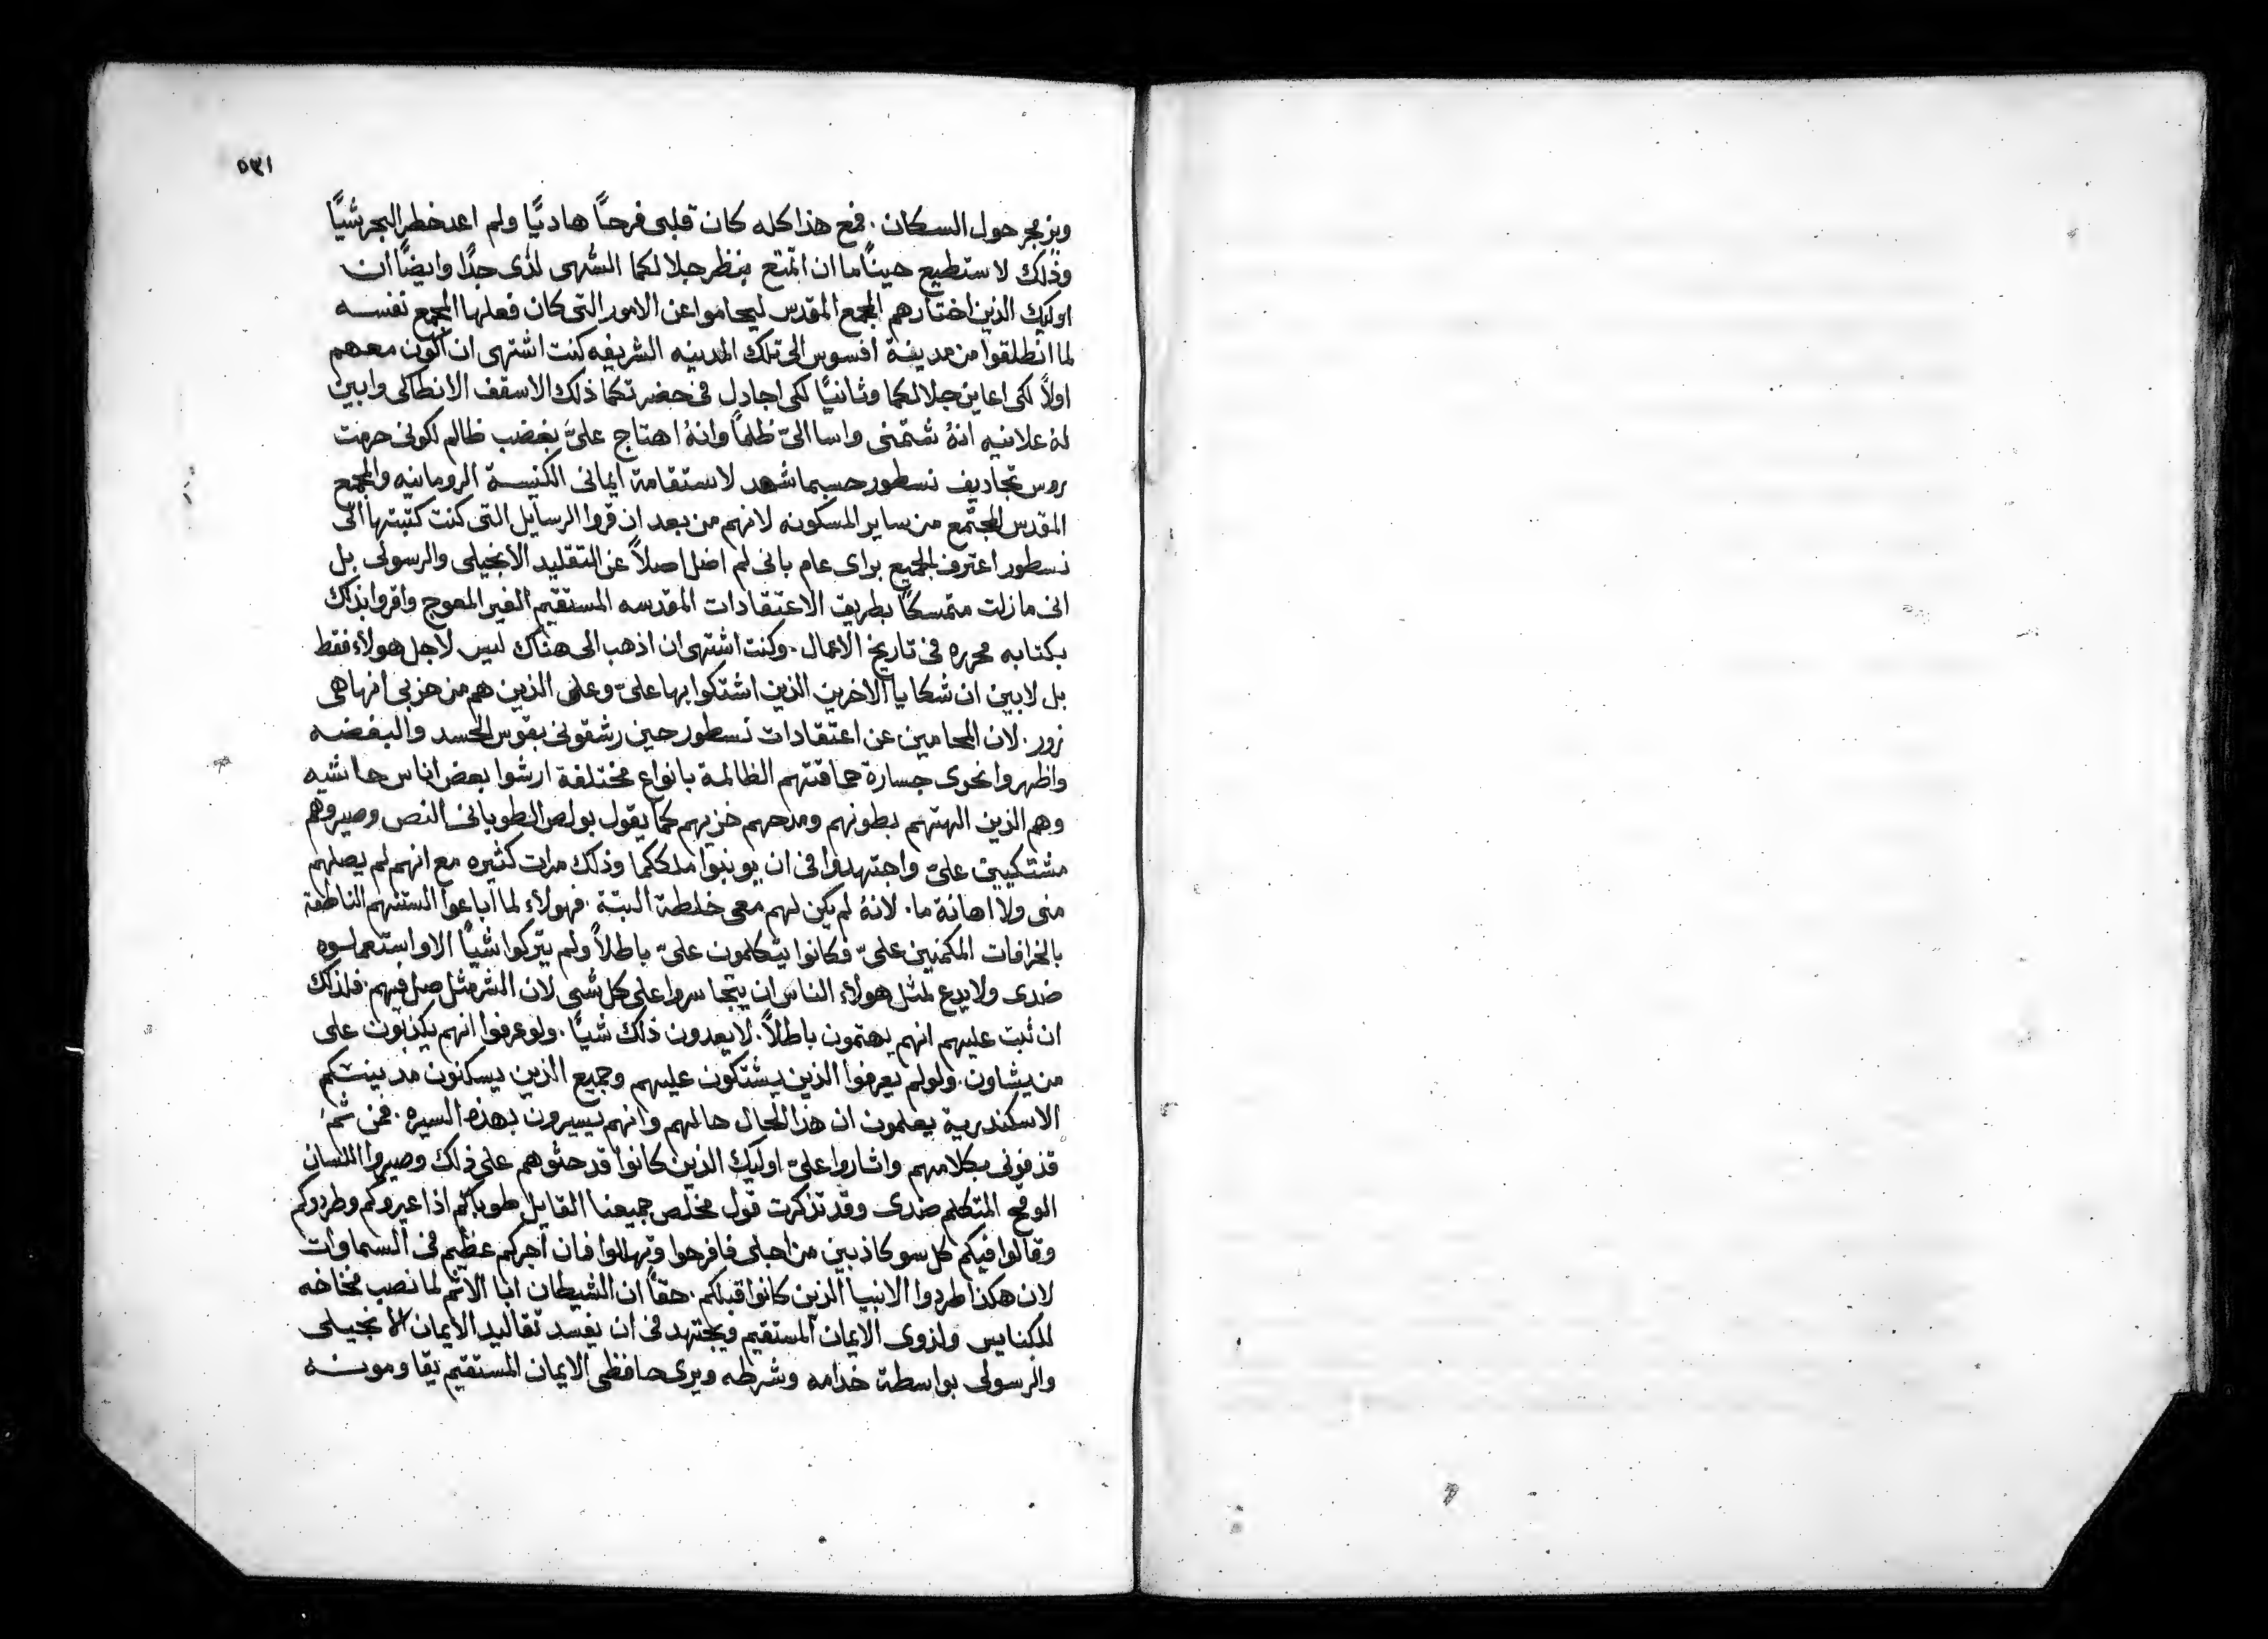 ٥٣١
ويزمجر حول السكان. فمع هذا كله كان قلبى فرحاً هاديًا ولم اعد خطر البحر شيًا
وذلك لاستطيع حيناً ما ان اتمتع بنظر جلالكما الشهى لدى جدًا وايضاً ان
اوليك الذين اختارهم المجمع المقدس ليحاموا عن الامور التى كان فعلها المجمع نفسه
لما انطلقوا من مدينة افسوس الى تلك المدينه الشريفه كنت اشتهى ان اكون معهم
اولاً لكى اعاين جلالكما وثانيًا لكى اجادل فى حضرتكما ذلك الاسقف الانطاكى وابين
لهُ علانيه انهُ شتمنى واسا الىّ ظلماً وانهُ اهتاج علىَّ بغضب ظالم لكونى حرمت
روس تجاديف نسطور حسبما شهد لاستقامة ايمانى الكنيسة الرومانيه والمجمع
المقدس المجتمع من ساير المسكونه لانهم من بعد ان قروا الرسايل التى كنت كتبتها الى
نسطور اعترف الجميع براى عام بانى لم اضل اصلاً عن التقليد الانجيلى والرسولى بل
انى ما زلت متمسكاً بطريق الاعتقادات المقدسه المستقيم الغير المعوج واقروا بذلك
بكتابه محرره فى تاريخ الاعمال. وكنت اشتهى ان اذهب الى هناك ليس لاجل هولاء فقط
بل لابين ان شكايا الاخرين الذين اشتكوا بها علىّ وعلى الذين هم من حزبى انها هى
زور. لان المحامين عن اعتقادات نسطور حين رشقونى بقوس الحسد والبغضه
واظهروا نحوى جسارة حماقتهم الظالمة بانواع مختلفة ارشوا بعض اناس حانثيه
وهم الذين الهتهم بطونهم ومدحهم خزيهم كما يقول بولص الطوبانى النص وصيروهم
مشتكيين علىّ واجتهدوا فى ان يوبنوا ملككما وذلك مرات كثيره مع انهم لم يصلهم
منى ولا اهانة ما. لانهُ لم يكن لهم معى خلطة البتة. فهولاء لما اباعوا السنتهم الناطقة
بالخرافات المكمنين علىّ فكانوا يتكلمون علىّ باطلاً ولم يتركوا شيًا الا واستعملوه
ضدى ولا بدع لمثل هولاء الناس ان يتجاسروا على كل شى لان الشر متاصل فيهم. فلذلك
ان ثبت عليهم انهم يهتمون باطلاً. لا يعدون ذلك شيًا. ولو عرفوا انهم يكذبون على
من يشاون. ولو لم يعرفوا الذين يشتكون عليهم وجميع الذين يسكنون مدينتكم
الاسكندرية يعلمون ان هذا الحال حالهم وانهم يسيرون بهذه السيره. فمن ثمَ
قذفونى بكلامهم واشاروا علىّ اوليك الذين كانوا قد حثوهم على ذلك وصيروا اللسان
الوقح المتكلم ضدى وقد تذكرت قول مخلص جميعنا القايل طوباكم اذا عيروكم وطردوكم
وقالوا فيكم كل سو كاذبين من اجلى فافرحوا وتهللوا فان اجركم عظيم فى السماوات
لان هكذا طردوا الانبيا الذين كانوا قبلكم. حقاً ان الشيطان ابا الاثم لما نصب فخاخه
للكنايس ولذوى الايمان المستقيم ويجتهد فى ان يفسد تقاليد الايمان الانجيلى
والرسولى بواسطة خدامه وشرطه ويرى حافظى الايمان المستقيم يقاومونه